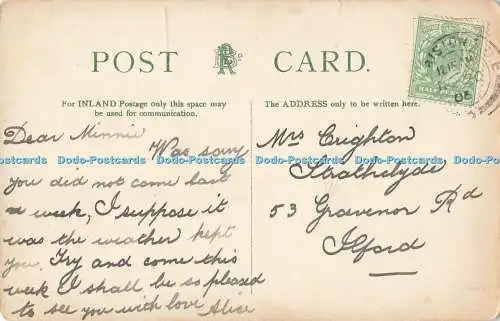 POST CARD.
For INLAND Postage only this space may
be used for communication.
The ADDRESS only to be written here.
Dear Minnie
Was sorry
you did not come last
week, I suppose it
was the weather kept
you. Try and come this
week I shall be so pleased
to see you with love Alice
Mrs Crighton
Strathclyde
53 Grosvenor Rd
Ilford
Dodo-Postcards Dodo-Postcards Dodo-Postcards Dodo-Postcards Dodo-Postcards Dodo-Postcards